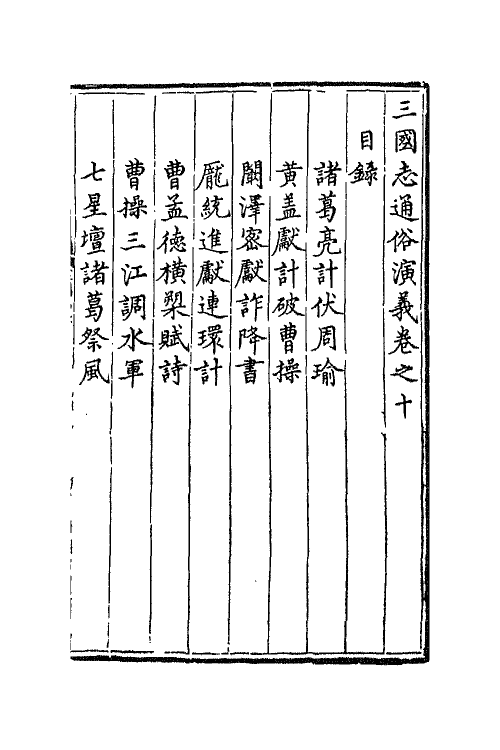 三國志通俗演義卷之十
目錄
諸葛亮計伏周瑜
黃盖獻計破曹操
闞澤密獻詐降書
龐統進獻連環計
曹孟德橫槊賦詩
曹操三江調水軍
七星壇諸葛祭風